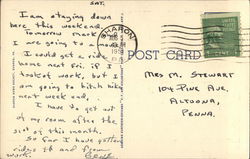 SAT.
I am staying down
here this weekend.
Tomorrow
I are going to a
I could get a ride
home next fri. if I
took of work, but I
am going to hitch hike
next week end,
I have to get out
of my room after the
31st of this month.
So far I have gotten
rides th and from
work.
SHARON
POST CARD
MRS M. STEWART
104 PINE AVE.
ALTOONA,
PENNA.